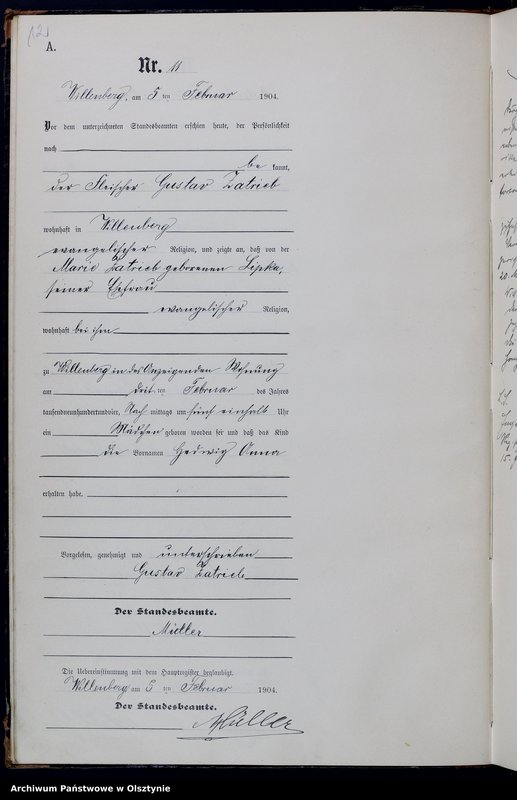 A.
Nr. 11
Willenberg, am 5 ten Februar 1904.
Vor dem unterzeichneten Standesbeamten erschien heute, der Persönlichkeit
nach
be kannt,
der Fleischer Gustav Zatrieb
wohnhaft in Willenberg
evangelischer Religion, und zeigte an, daß von der
Marie Zatrieb geborenen Lipka,
seiner Ehefrau
evangelischer Religion,
wohnhaft bei ihm
zu Willenberg in des Anzeigenden Wohnung
am drit ten Februar des Jahres
tausendneunhundertundvier, Nach mittags um fünf einhalb Uhr
ein Mädchen geboren worden sei und daß das Kind
die Vornamen Hedwig Anna
erhalten habe.
Vorgelesen, genehmigt und unterschrieben
Gustav Zatrieb
Der Standesbeamte.
Müller
Die Uebereinstimmung mit dem Hauptregister beglaubigt.
Willenberg am 5 ten Februar 1904.
Der Standesbeamte.
Müller
Archiwum Państwowe w Olsztynie